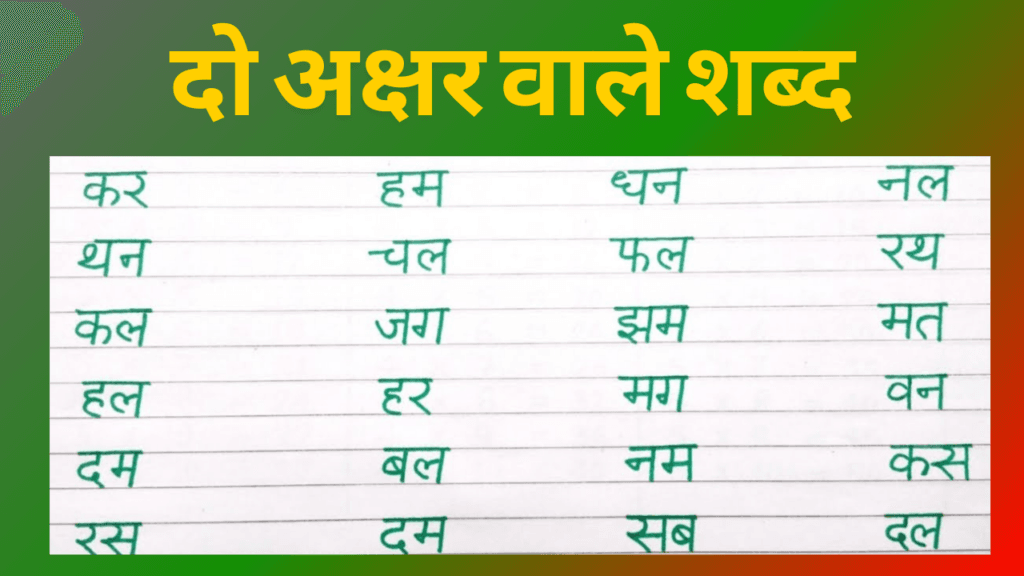 दो अक्षर वाले शब्द
कर हम धन नल
थन चल फल रथ
कल जग झम मत
हल हर मग वन
दम बल नम कस
रस दम सब दल